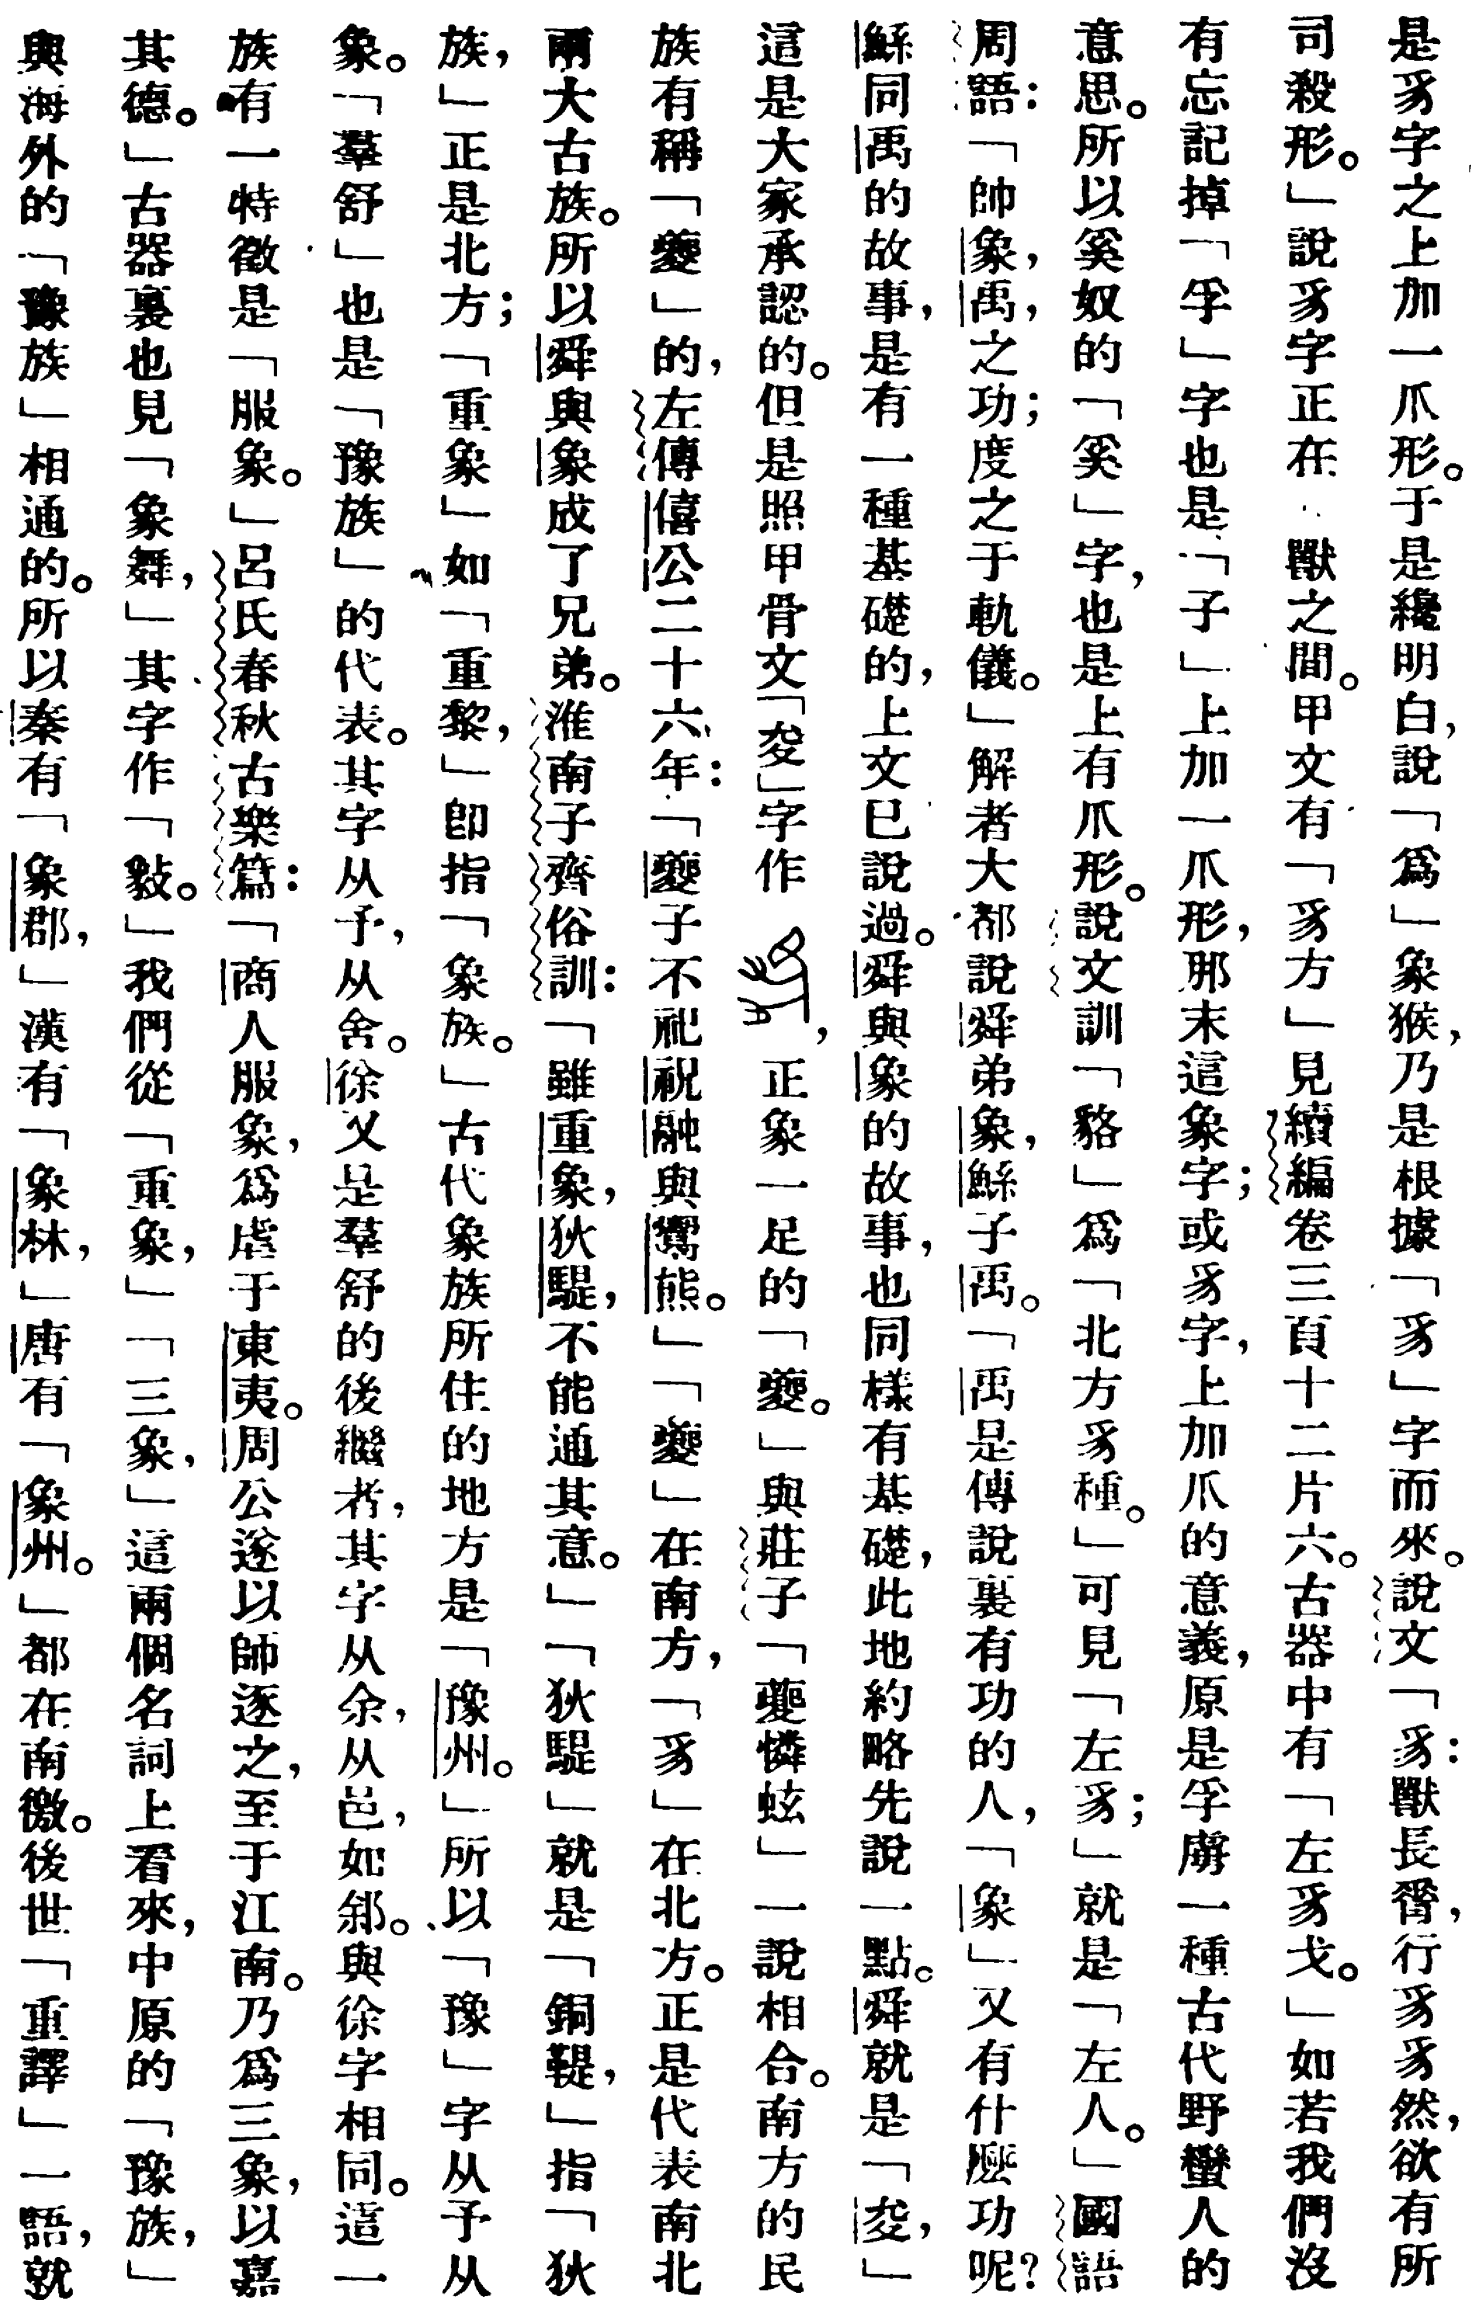 是豸字之上加一爪形。于是纔明白，說「爲」象猴，乃是根據「豸」字而來。說文「豸：獸長脊，行豸豸然，欲有所
司殺形。」說豸字正在獸之間。甲文有「豸方」見續編卷三頁十二片六。古器中有「左豸戈。」如若我們沒
有忘記掉「孚」字也是「子」上加一爪形，那末這象字；或豸字，上加爪的意義，原是孚虜一種古代野蠻人的
意思。所以奚奴的「奚」字，也是上有爪形。說文訓「貉」爲「北方豸種。」可見「左豸；」就是「左人。」國語
周語：「帥象，禹，之功；度之于軌儀。」解者大都說舜弟象，鯀子禹。「禹是傳說裏有功的人，「象」又有什麼功呢？
鯀同禹的故事，是有一種基礎的，上文已說過。舜與象的故事，也同樣有基礎，此地約略先說一點。舜就是「夋，」
這是大家承認的。但是照甲骨文「夋」字作，正象一足的「夔。」與莊子「夔憐蚿」一說相合。南方的民
族有稱「夔」的，左傳僖公二十六年：「夔子不祀祝融與鬻熊。」「夔」在南方，「豸」在北方。正是代表南北
兩大古族。所以舜與象成了兄弟。淮南子齊俗訓：「雖重象，狄騠，不能通其意。」「狄騠」就是「銅鞮，」指「狄
族，」正是北方；「重象」如「重黎，」卽指「象族。」古代象族所住的地方是「豫州。」所以「豫」字从予从
象。「羣舒」也是「豫族」的代表。其字从予，从舍。徐又是羣舒的後繼者，其字从余，从邑，如䣄。與徐字相同。這一
族有一特徵是「服象。」呂氏春秋古樂篇：「商人服象，爲虐于東夷。周公遂以師逐之，至于江南。乃爲三象，以嘉
其德。」古器裏也見「象舞，」其字作「𢾭。」我們從「重象，」「三象，」這兩個名詞上看來，中原的「豫族，」
與海外的「豫族」相通的。所以秦有「象郡，」漢有「象林，」唐有「象州。」都在南徼。後世「重譯」一語，就